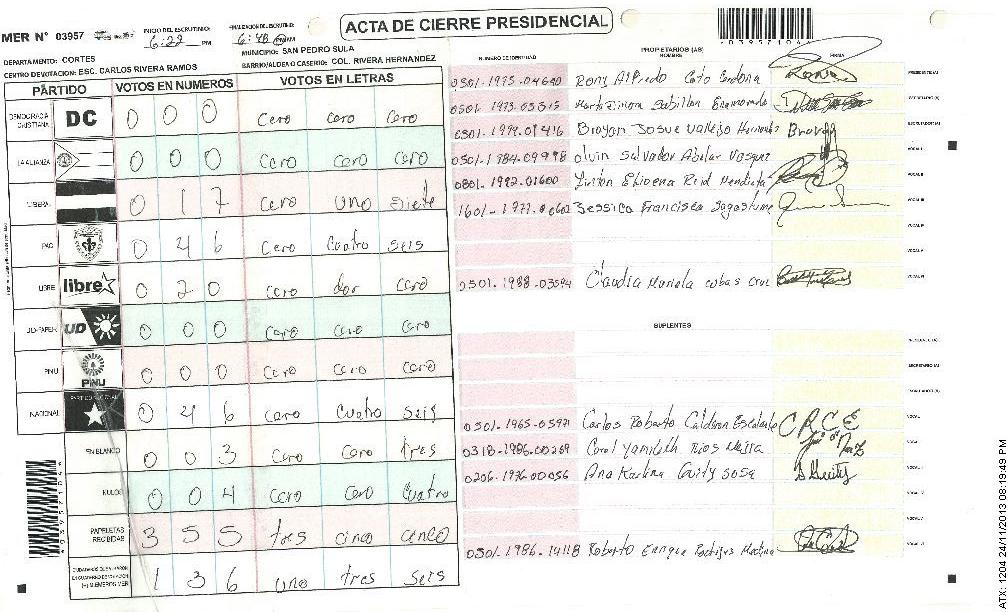 ACTA DE CIERRE PRESIDENCIAL
MER N° 03957
INICIO DEL ESCRUTINIO: 6:22 PM
FINALIZACION DEL ESCRUTINIO: 6:48 PM
DEPARTAMENTO: CORTES
MUNICIPIO: SAN PEDRO SULA
CENTRO DE VOTACION: ESC. CARLOS RIVERA RAMOS
BARRIO/ALDEA O CASERIO: COL. RIVERA HERNANDEZ
PARTIDO VOTOS EN NUMEROS VOTOS EN LETRAS
DEMOCRACIA CRISTIANA DC 0 0 0 Cero cero Cero
LA ALIANZA 0 0 0 Cero Cero Cero
LIBERAL 0 1 7 Cero Uno Siete
PAC 0 4 6 Cero Cuatro Seis
LIBRE libre 0 2 0 Cero dos Cero
UD-FAPER UD 0 0 0 Cero Cero Cero
PINU PINU 0 0 0 Cero Cero Cero
NACIONAL PARTIDO NACIONAL 0 4 6 Cero Cuatro Seis
EN BLANCO 0 0 3 Cero Cero tres
NULOS 0 0 4 Cero Cero Cuatro
PAPELETAS RECIBIDAS 3 5 5 tres cinco cinco
1 3 6 uno tres Seis
NUMERO DE IDENTIDAD PROPIETARIOS (AS) NOMBRE FIRMA
Rony Alfredo Coto PRESIDENTE(A)
Sabillon Enamorado
Brayan Josue Vallejo
0501-1984-09998 Olvin Salvador Abelar Vasquez
0801-1992-01600 Reid Mendieta
Jessica Francisca Sagastume
0501-1988-03594 Claudia Mariela Cubas Cruz
SUPLENTES
0501-1965-05971 Carlos Roberto Calderon Escalante CRCE
0318-1986-00269 Carol Yamileth Rios
0206-1976-00056 Ana Karina Guity Sosa
0501-1986-14118 Roberto Enrique Medina
ATX: 1204 24/11/2013 08:19:49 PM